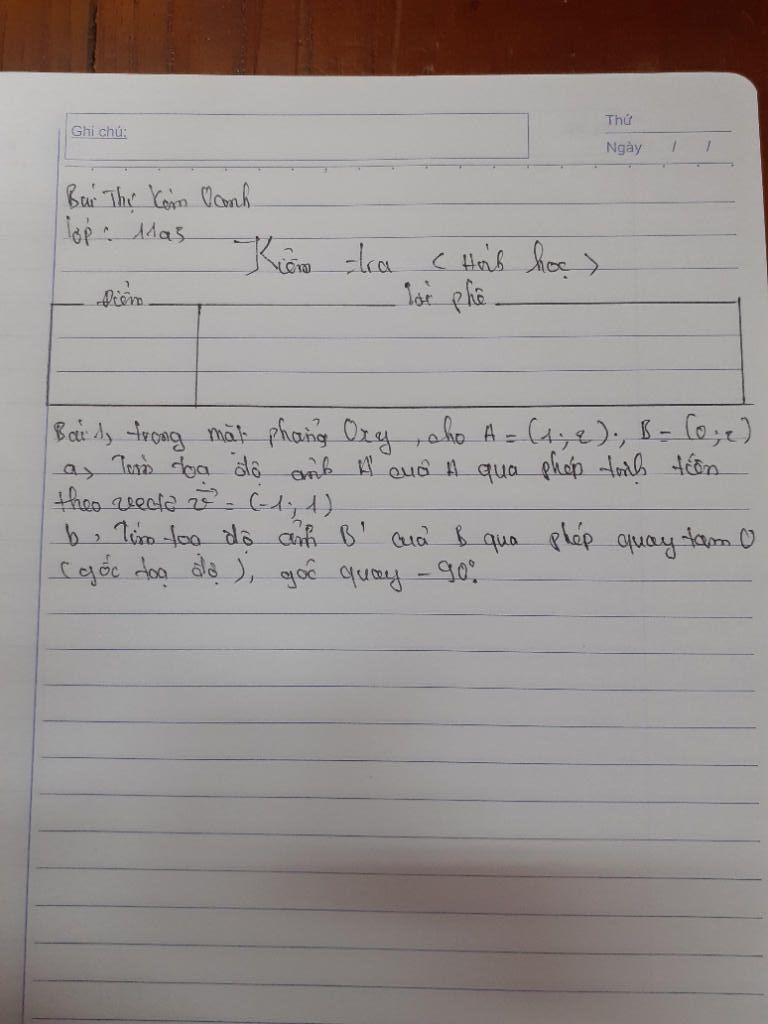 Ghi chú:
Thứ
Ngày / /
Bùi Thị Kim Oanh
lớp: 11a5
Kiểm tra (Hình học)
Điểm
lời phê
Bài 1, trong mặt phẳng Oxy, cho A = (1; 2)., B = (0; 2)
a, Tìm toạ độ ảnh A' của A qua phép tịnh tiến
theo vectơ v = (-1; 1)
b, Tìm toạ độ ảnh B' của B qua phép quay tam O
(gốc toạ độ), góc quay -90°.